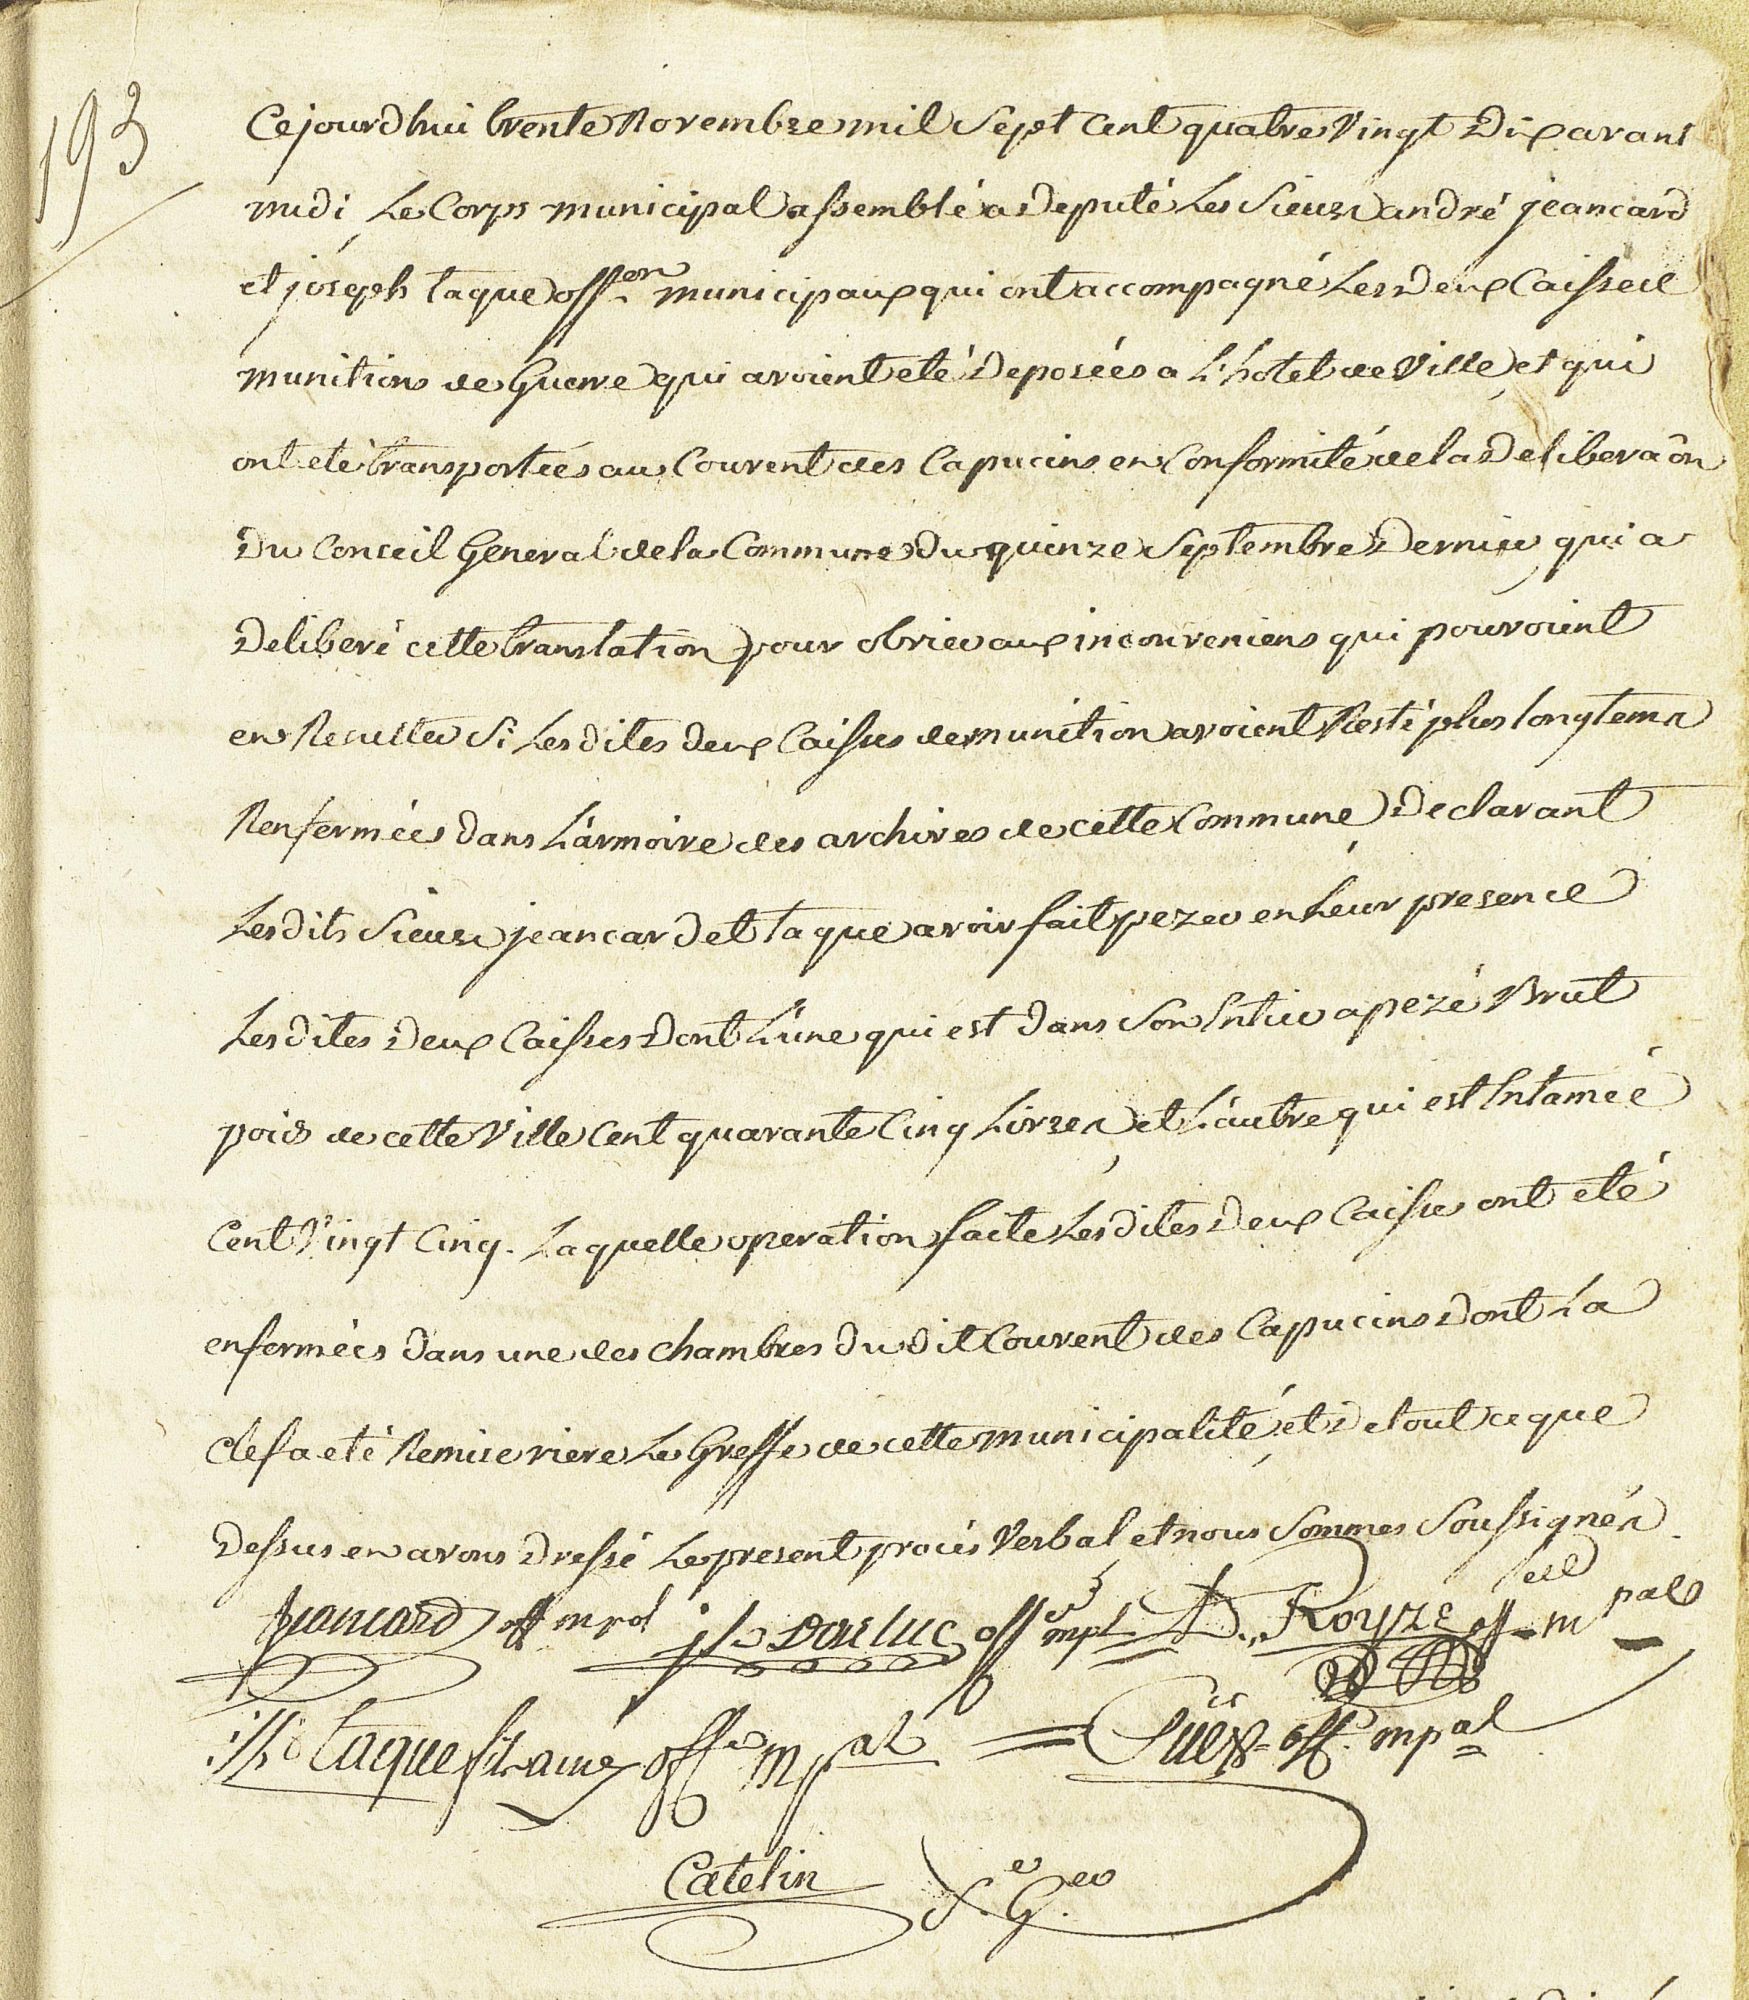 193
Cejourdhui trente Novembre mil Sept Cent quatre Vingt Dix avant
midi Le Corps municipal assemblé a Deputé Les Sieurs andré jeancard
et joseph taque off.ers municipaux qui ont accompagné Les Deux Caisses de
munitions de Guerre qui avoient eté Deposées a L'hotel de Ville et qui
ont eté transportées au Couvent des Capucins en Conformité de la Deliberâôn
Du Conseil General de la Commune Du quinze Septembre Dernier qui a
Deliberé cette translation pour obvier aux inconveniens qui pouvoient
en Resulter Si Les dites deux Caisses de munition avoient Resté plus longtems
Renfermées dans L'armoire des archives de cette Commune, Declarant
Les dits Sieurs jeancard et taque avoir fait pezer en Leur presence
Les dites Deux Caisses Dont L'une qui est dans Son Entier a pezé Brut
poids de cette Ville Cent quarante Cinq Livres, et L'autre qui est Entamée
Cent Vingt Cinq. Laquelle operation faite Les dites Deux Caisses ont eté
enfermées dans une des chambres Du dit Couvent des Capucins Dont La
clef a eté Remise riere Le Greffe de cette municipalité, et De tout ce que
Dessus en avons Dressé Le present procés Verbal et nous Sommes Soussignés
Jeancard off mpal Darluc off mpl D. Royze off m pal
taque fils ainé off mpal Suës off. mpal
Catelin S.e G.er